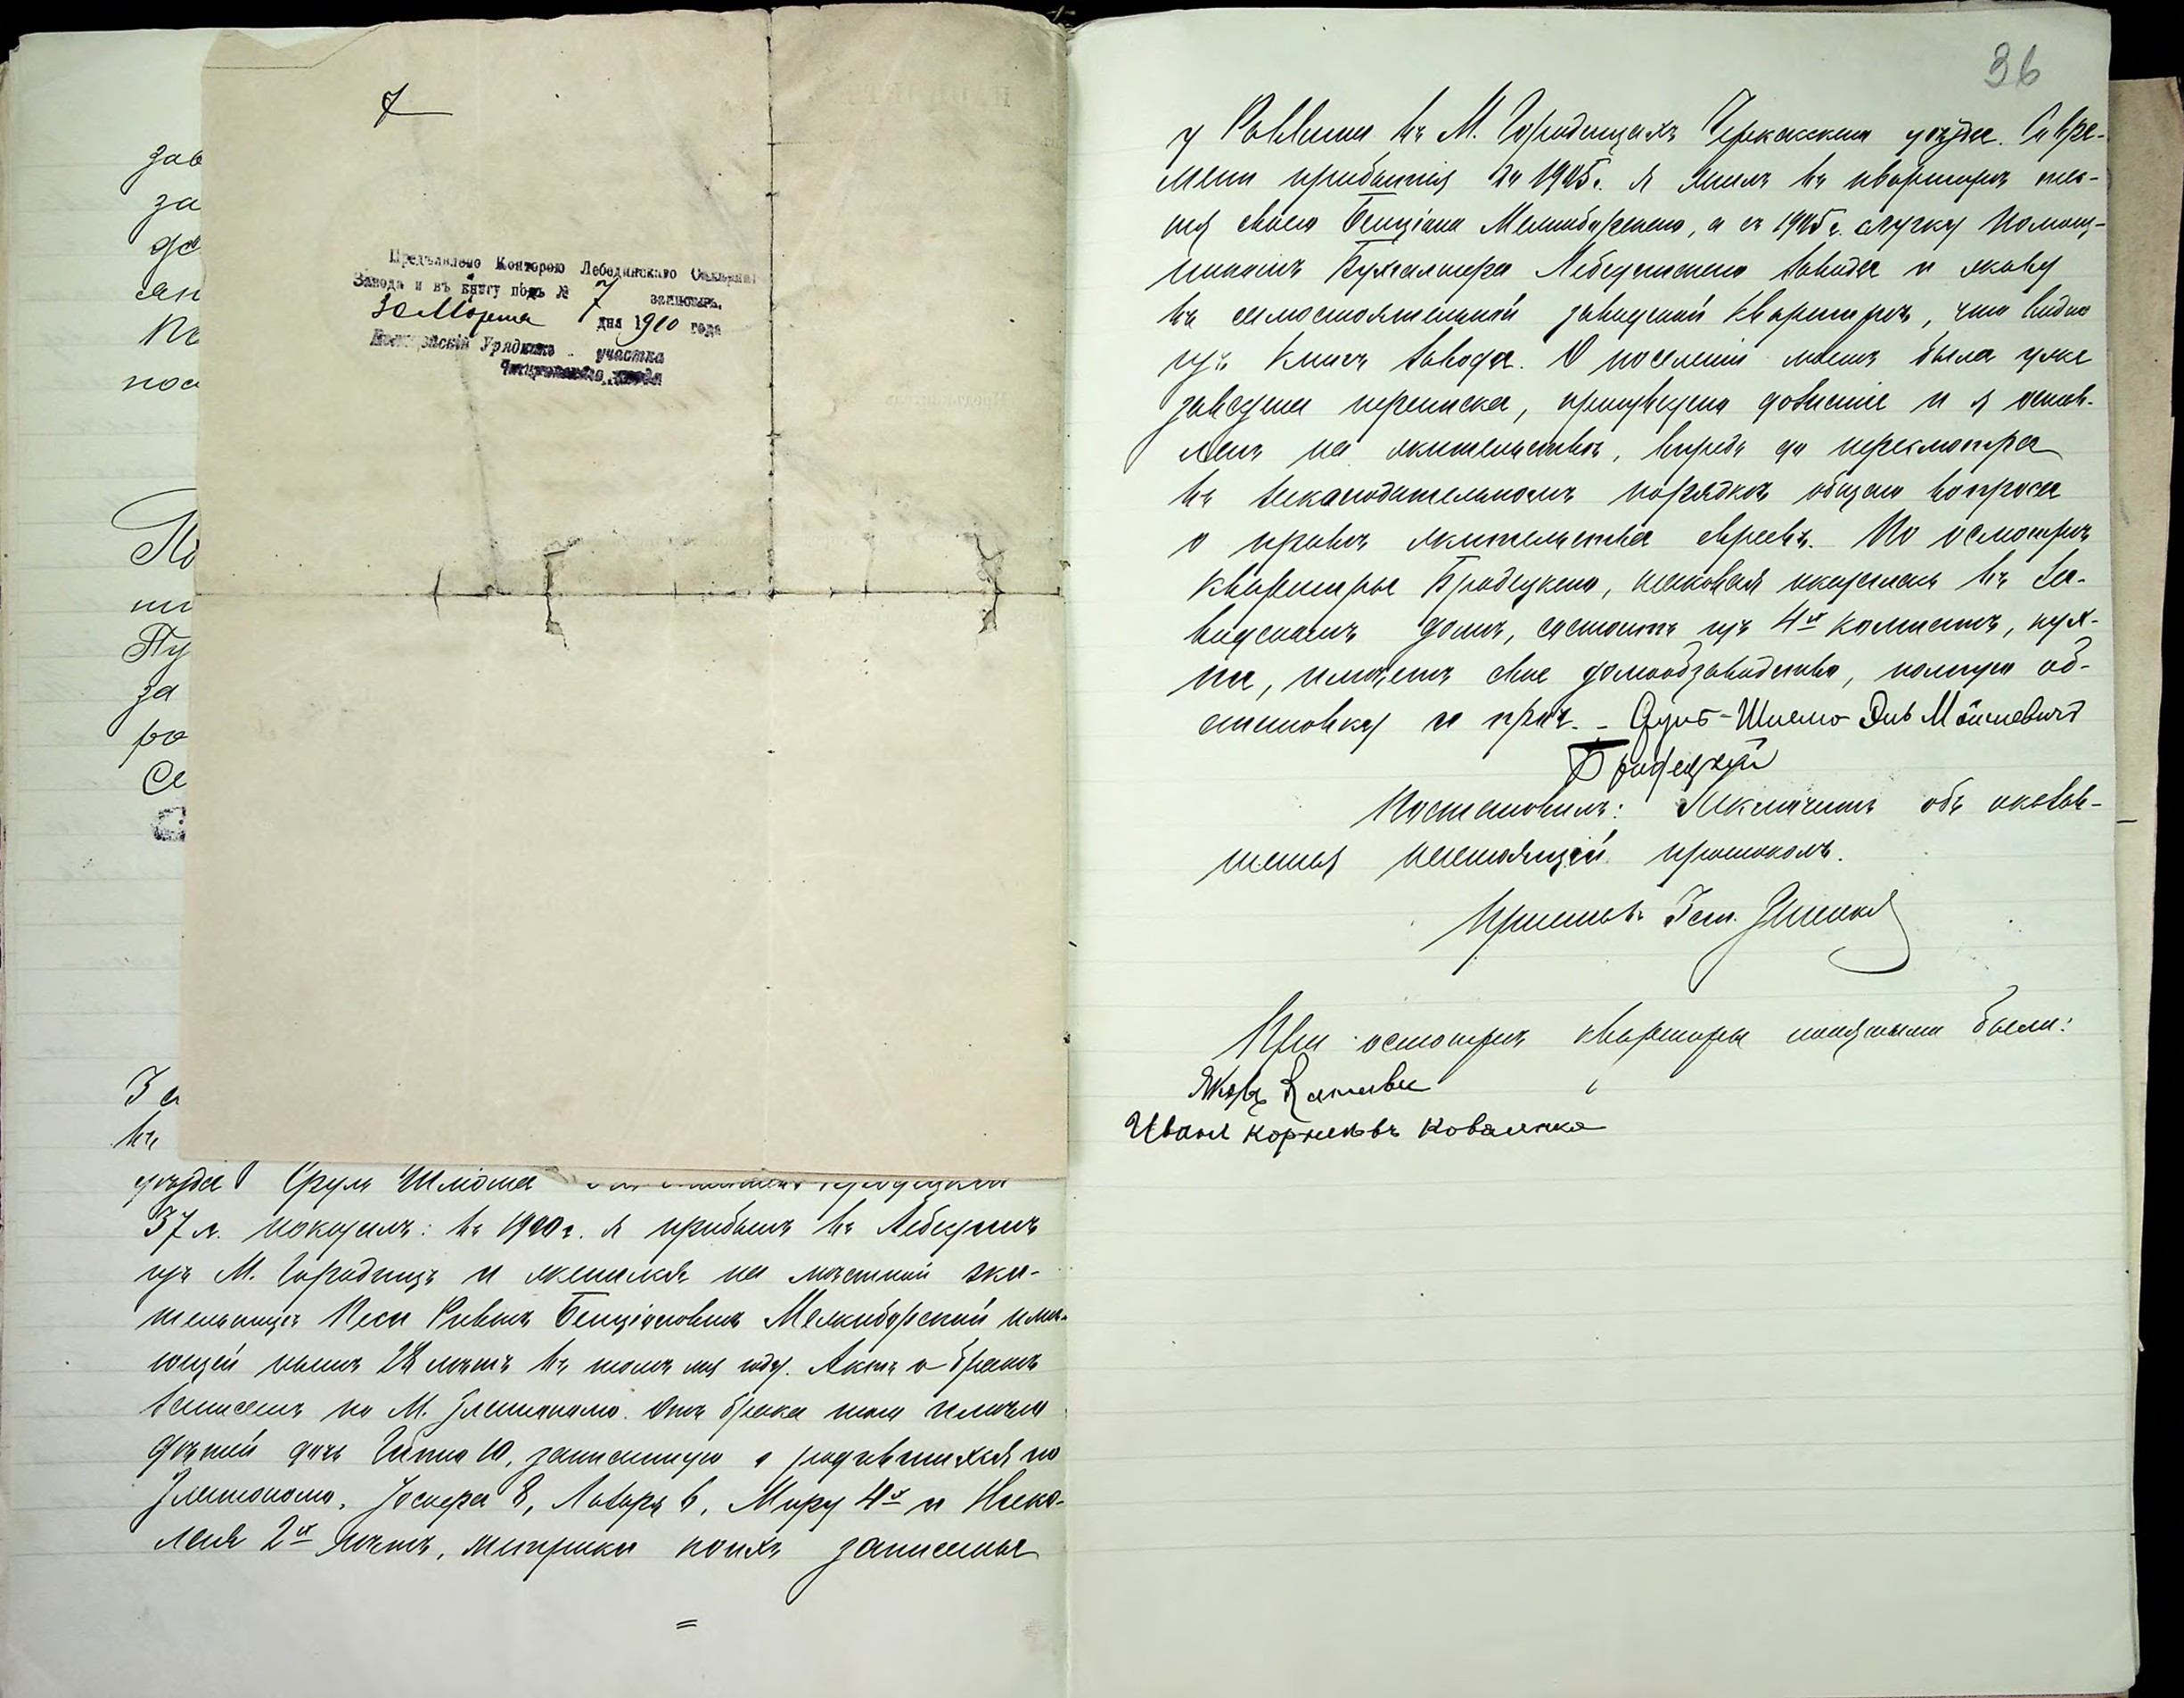 зав
за
до
сан
по
7
Предъявлено Конторою Лебединскаго Сахарн.
Завода и въ книгу подъ № 7 записанъ.
30 Марта дня 1910 года
Полицейскій Урядникъ участка
Чигиринскаго уѣзда
по
Пу
за
ро
Се
За
въ
уѣзда Сруль Шлиома
37 л. показалъ: въ 1900 г. я прибылъ въ Лебединъ
изъ М. Городищъ и женился на мѣстной жи-
тельницѣ Песи Ривкѣ Бенціоновнѣ Межиборской имѣ-
ющей нынѣ 28 лѣтъ въ томъ же году. Актъ о бракѣ
записанъ по М. Златополю. Отъ брака того имѣю
дѣтей дочь 10, записанную о родившихся по
Златополю, Іосифа 8, Лазаря 6, Миру 4х и Нико-
лая 2х лѣтъ, метрики коихъ записаны
36
у Раввина въ М. Городищахъ Черкасскаго уѣзда. Со вре-
мени прибытія до 1905 г. я жилъ въ квартирѣ тес-
тя своего Бенціана Межиборскаго, а съ 1905 г. служу помощ-
никомъ Бухгалтера Лебединскаго завода и живу
въ самостоятельной заводской квартирѣ, что видно
изъ книгъ завода. О поселеніи моемъ была уже
заведена переписка, произведено дознаніе и я остав-
ленъ на жительствѣ, впредь до пересмотра
въ законодательномъ порядкѣ общаго вопроса
о правѣ жительства евреевъ. По осмотрѣ
квартиры Бродецкаго, таковая оказалась въ за-
водскомъ домѣ, состоитъ изъ 4х комнатъ, кух-
ни, имѣетъ свое домообзаводство, полную об-
становку и проч. - Сруль-Шлиома Мойшевичъ
Бродецкій
Постановилъ: Заключить объ оказав-
шемся настоящій протоколъ.
Приставъ
При осмотрѣ квартиры понятыми были:
Яковъ
Иванъ Корнѣевъ Коваленко